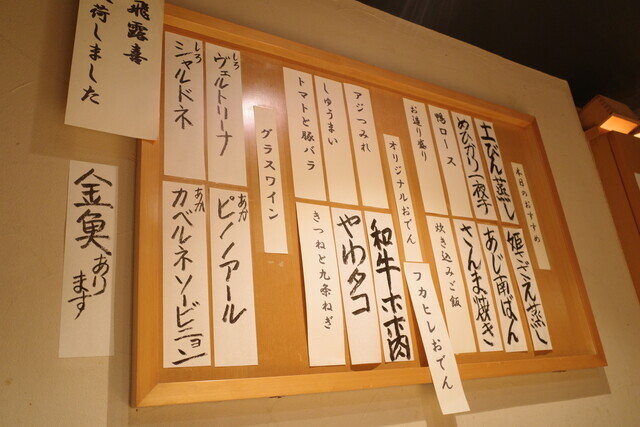 本日のおすすめ
土びん蒸し
姫さざえ蒸し
めひかり一夜干
あじ南ばん
鴨ロース
さんま焼き
お造り盛り
炊き込みご飯
オリジナルおでん
フカヒレおでん
アジつみれ
和牛ホホ肉
しゅうまい
やわタコ
トマトと豚バラ
きつねと九条ねぎ
グラスワイン
しろ
ヴェルトリーナ
あか
ピノノアール
しろ
シャルドネ
あか
カベルネソービニョン
飛露喜
荷しました
金魚あり
ます